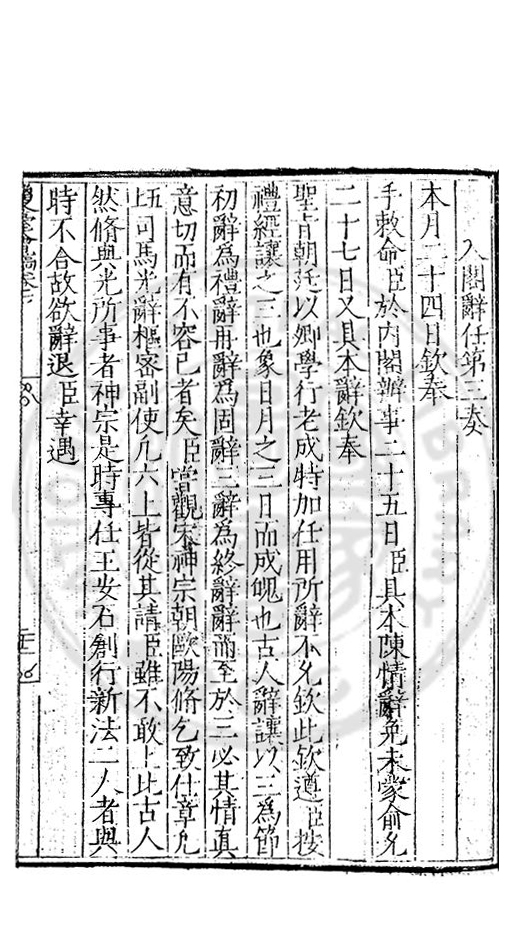 入閣辭任第三奏
本月二十四日欽奉
手敕命臣於內閣辦事二十五日臣具本陳情辭免未蒙俞允
二十七日又具本辭欽奉
聖旨朝廷以卿學行老成特加任用所辭不允欽此欽遵臣按
禮經讓之三也象日月之三日而成魄也古人辭讓以三為節
初辭為禮辭再辭為固辭三辭為終辭辭而至於三必其情真
意切而有不容已者矣臣嘗觀宋神宗朝歐陽脩乞致仕章凡
五司馬光辭樞密副使凡六上皆從其請臣雖不敢上比古人
然脩與光所事者神宗是時專任王安石創行新法二人者與
時不合故欲辭退臣幸遇
稿卷七